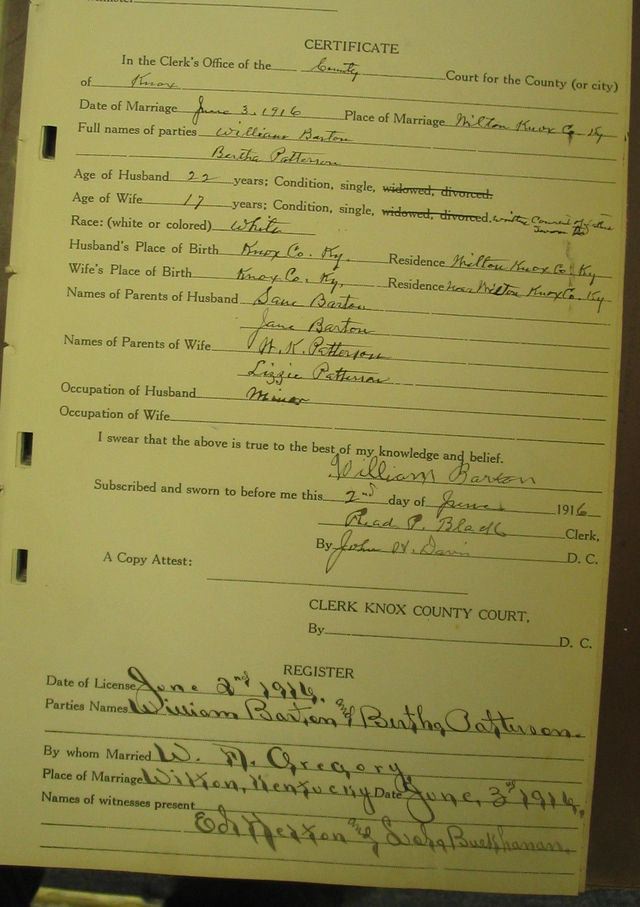 CERTIFICATE
In the Clerk's Office of the County Court for the County (or city)
of Knox
Date of Marriage June 3, 1916 Place of Marriage Wilton Knox Co. Ky
Full names of parties William Barton
Bertha Patterson
Age of Husband 22 years; Condition, single, widowed, divorced.
Age of Wife 17 years; Condition, single, widowed, divorced. of
Race: (white or colored) White
Husband's Place of Birth Knox Co. Ky. Residence Wilton Knox Co. Ky
Wife's Place of Birth Knox Co. Ky. Residence near Wilton Knox Co. Ky
Names of Parents of Husband Barton
Jane Barton
Names of Parents of Wife W. K. Patterson
Lizzie Patterson
Occupation of Husband Miner
Occupation of Wife
I swear that the above is true to the best of my knowledge and belief.
William Barton
Subscribed and sworn to before me this 2nd day of June 1916
Read P. Black Clerk,
By John H. Davis D. C.
A Copy Attest:
CLERK KNOX COUNTY COURT,
By D. C.
REGISTER
Date of License June 2nd 1916.
Parties Names William Barton and Bertha Patterson.
By whom Married W. A. Gregory,
Place of Marriage Wilton, Kentucky Date June, 3rd 1916.
Names of witnesses present
Ed and Buckhanan.